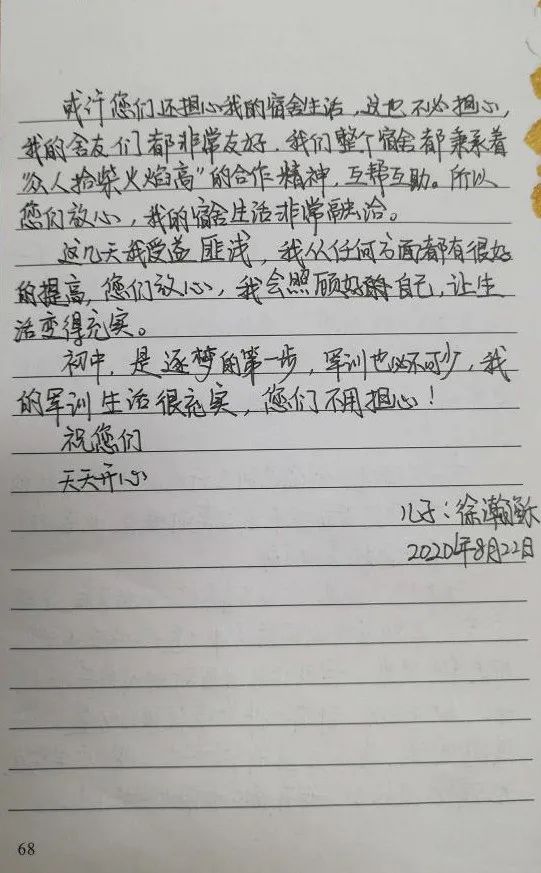 或许您们还担心我的宿舍生活，这也不必担心，
我的舍友们都非常友好，我们整个宿舍都秉承着
“众人拾柴火焰高”的合作精神，互帮互助。所以
您们放心，我的宿舍生活非常融洽。
这几天我受益匪浅，我从任何方面都有很好
的提高，您们放心，我会照顾好自己，让生
活变得充实。
初中，是逐梦的第一步，军训也必不可少，我
的军训生活很充实，您们不用担心！
祝您们
天天开心
儿子：徐瀚
2020年8月22日
68